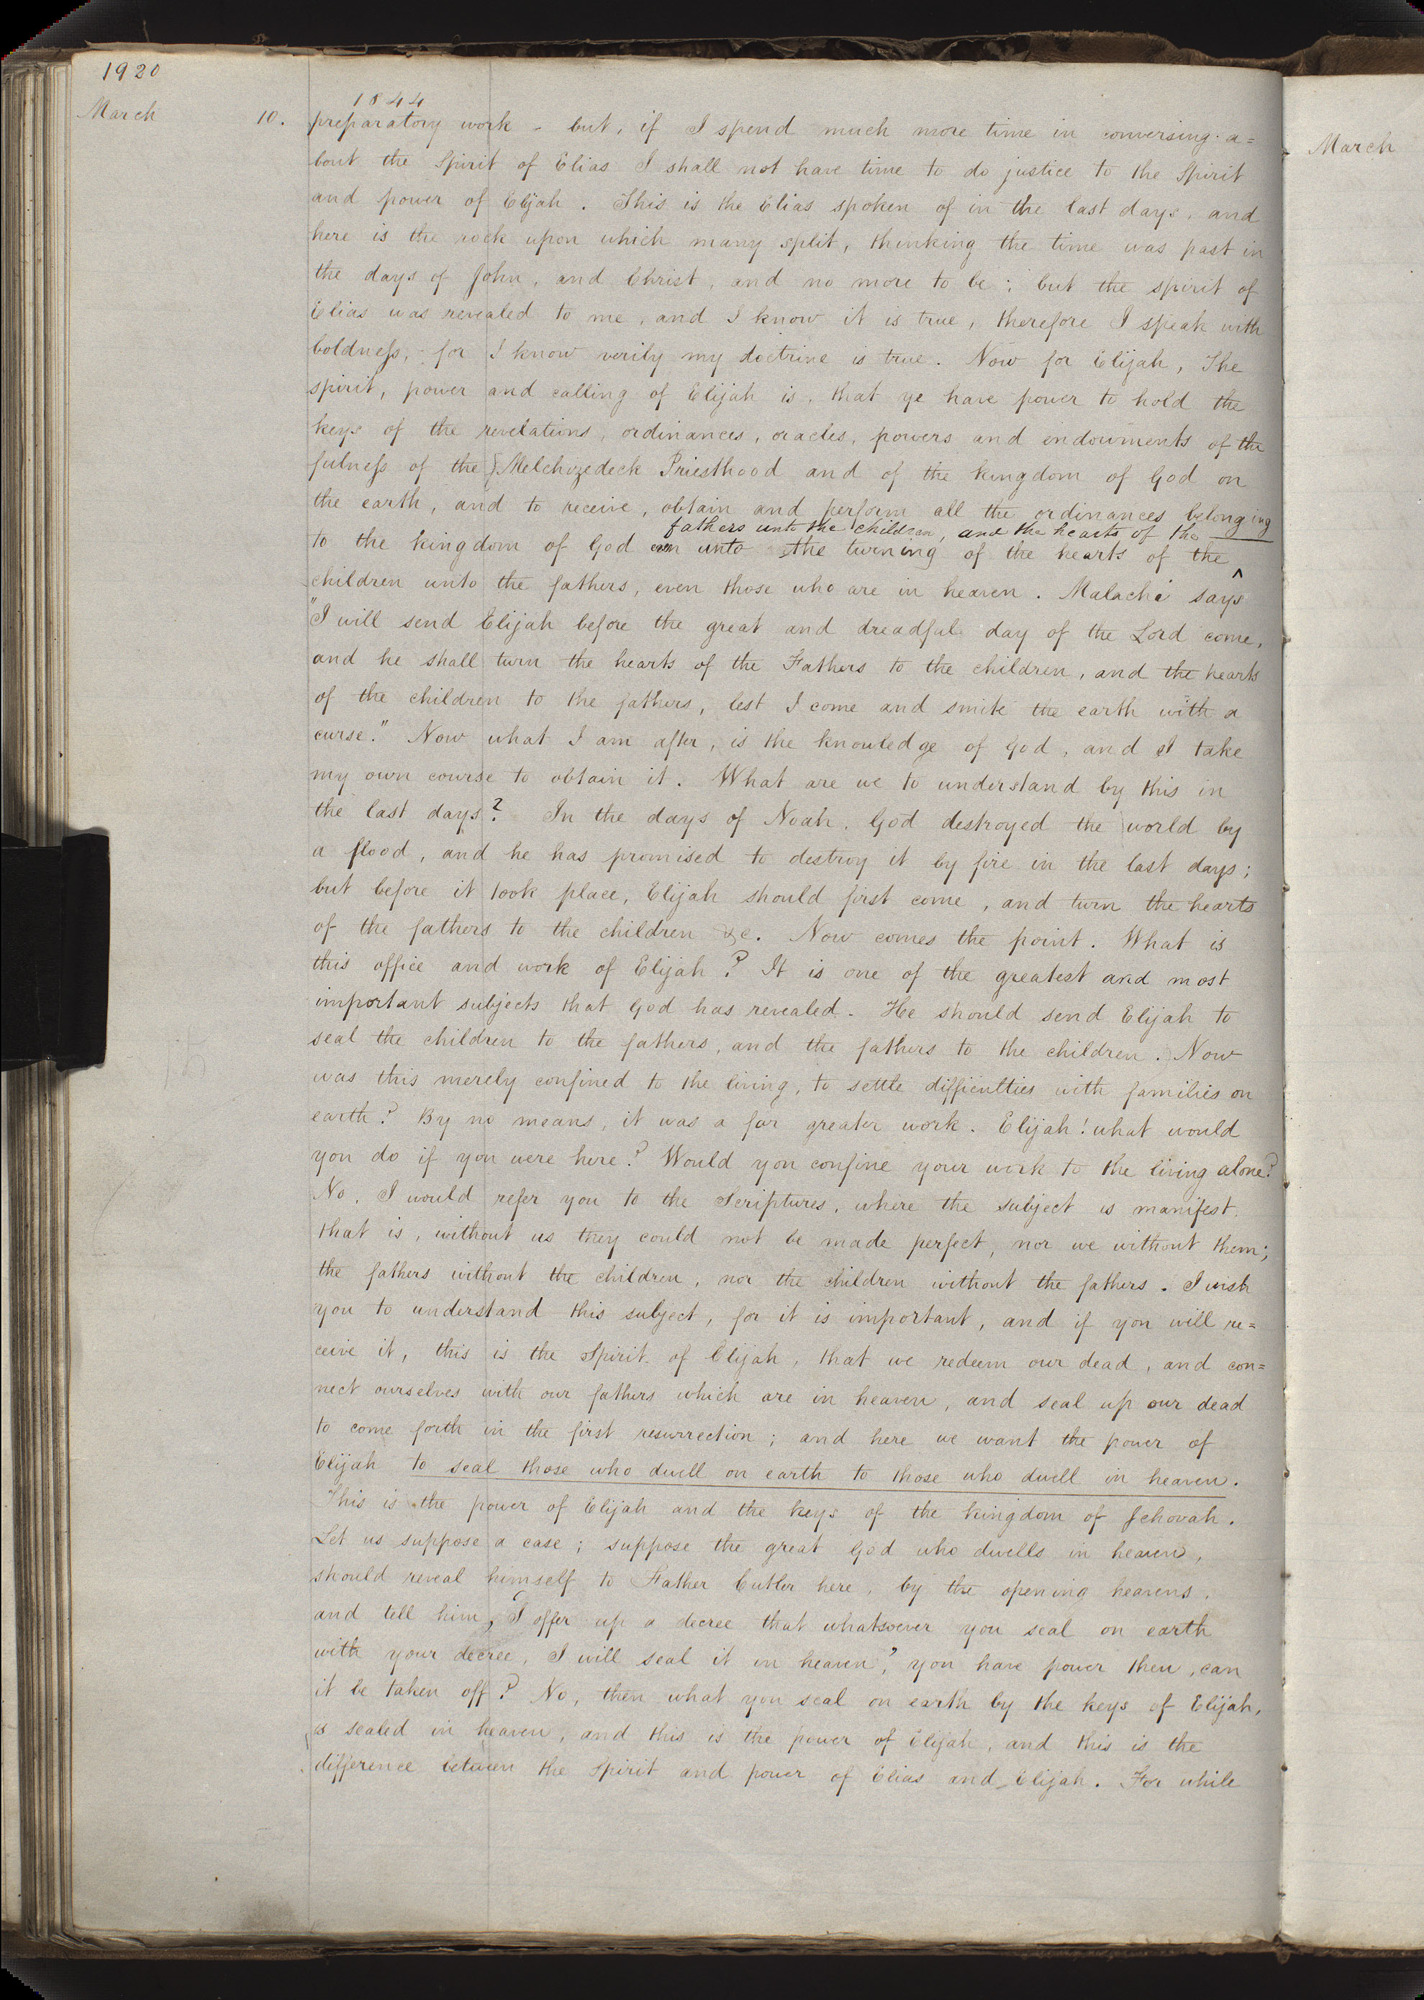 1920
1844
March 10. preparatory work - but, if I spend much more time in conversing a=
bout the Spirit of Elias I shall not have time to do justice to the Spirit
and power of Elijah. This is the Elias spoken of in the last days, and
here is the rock upon which many split, thinking the time was past in
the days of John, and Christ, and no more to be; but the spirit of
Elias was revealed to me, and I know it is true, therefore I speak with
boldness, for I know verily my doctrine is true. Now for Elijah, The
spirit, power and calling of Elijah is, that ye have power to hold the
keys of the revelations, ordinances, oracles, powers and endowments of the
fulness of the Melchizedeck Priesthood and of the kingdom of God on
the earth, and to receive, obtain and perform all the ordinances belonging
fathers unto the children, and the hearts of the
to the kingdom of God even unto the turning of the hearts of the ^
children unto the fathers, even those who are in heaven. Malachi says
"I will send Elijah before the great and dreadful day of the Lord come,
and he shall turn the hearts of the Fathers to the children, and the hearts
of the children to the fathers, lest I come and smite the earth with a
curse." Now what I am after, is the knowledge of God, and I take
my own course to obtain it. What are we to understand by this in
the last days? In the days of Noah, God destroyed the world by
a flood, and he has promised to destroy it by fire in the last days;
but before it took place, Elijah should first come, and turn the hearts
of the fathers to the children &c. Now comes the point. What is
this office and work of Elijah? It is one of the greatest and most
important subjects that God has revealed. He should send Elijah to
seal the children to the fathers, and the fathers to the children. Now
was this merely confined to the living, to settle difficulties with families on
earth? By no means, it was a far greater work. Elijah! what would
you do if you were here? Would you confine your work to the living alone?
No. I would refer you to the Scriptures, where the subject is manifest,
that is, without us they could not be made perfect, nor we without them;
the fathers without the children, nor the children without the fathers. I wish
you to understand this subject, for it is important, and if you will re=
ceive it, this is the Spirit of Elijah, that we redeem our dead, and con=
nect ourselves with our fathers which are in heaven, and seal up our dead
to come forth in the first resurrection; and here we want the power of
Elijah to seal those who dwell on earth to those who dwell in heaven.
This is the power of Elijah and the keys of the kingdom of Jehovah.
Let us suppose a case; suppose the great God who dwells in heaven,
should reveal himself to Father Cutler here, by the opening heavens,
and tell him, I offer up a decree that whatsoever you seal on earth
with your decree, I will seal it in heaven, you have power then, can
it be taken off? No, then what you seal on earth by the keys of Elijah,
is sealed in heaven, and this is the power of Elijah, and this is the
difference between the Spirit and power of Elias and Elijah. For while
March